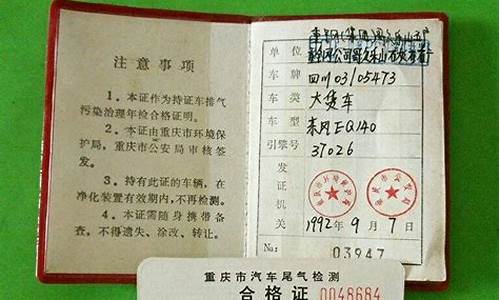 注意事项
1．本证作为持证车排气
污染治理年检合格证明。
2．本证由重庆市环境保
护局，重庆市公安局审核签
发。
3．持有此证的车辆，在
净化装置有效期内，不再检测。
4．本证需随身携带备
查，不得遗失、涂改、转让。
单位
车牌 四川03/05473
车类 大货车
车型 东风EQ140
引擎号 37026
发证机关
1992年9月7日
No: 03947
重庆市汽车尾气检测
合格证 0048684